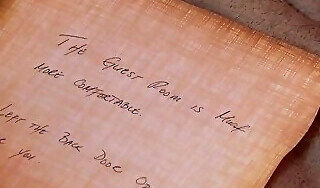 The Guest Room is Much
more comfortable.
Left the Back Door O
e you.